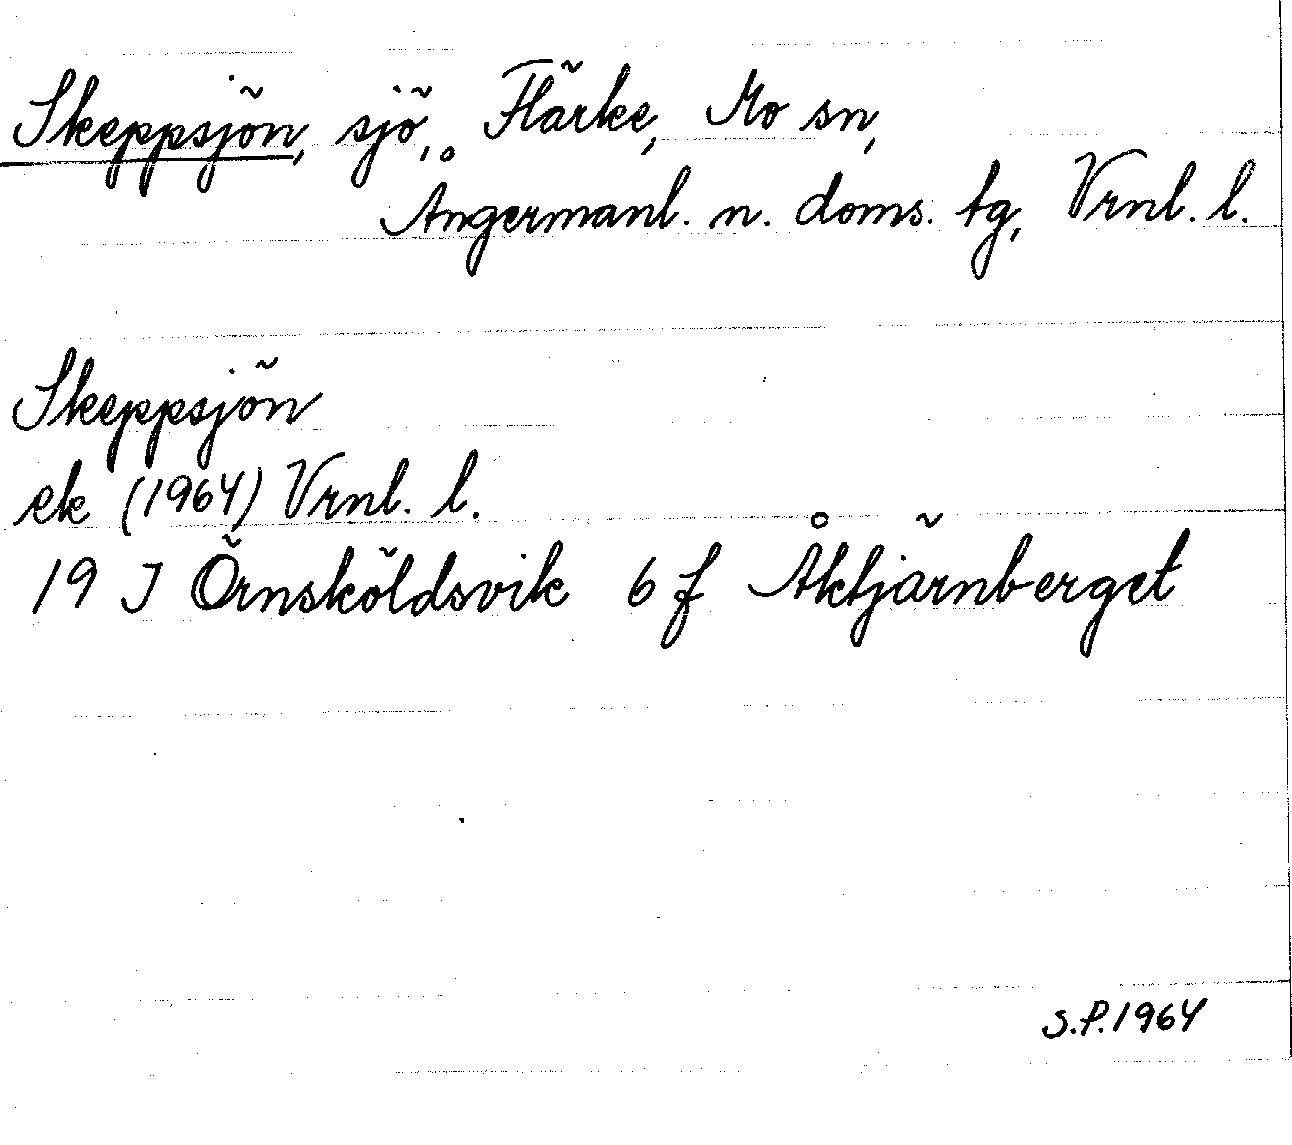 Skeppsjön, sjö, Flärke, Mo sn,
Ångermanl. n. doms. tg, Vrnl. l.
Skeppsjön
ek (1964) Vrnl. l.
19 J Örnsköldsvik 6 f Åktjärnberget
S.P. 1964